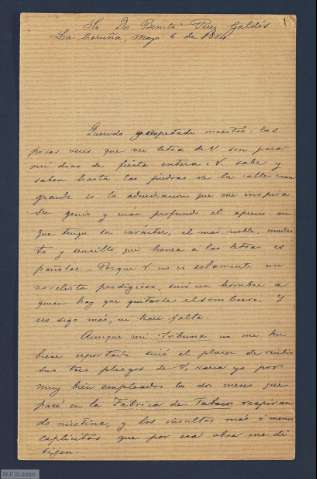 Sr. Dn. Benito Pérez Galdós
La Coruña, Mayo 6 de 1884
Querido y respetado maestro: las
pocas veces que veo letra de V. son para
mí dias de fiesta entera: V. sabe y
saben hasta las piedras de la calle cuan
grande es la admiracion que me inspira
su genio y cuan profundo el aprecio en
que tengo su carácter, el más noble, modes
to y sencillo que honra a las letras es
pañolas. Porque V. no es solamente un
novelista prodigioso, sinó un hombre a
quien hay que quitarse el sombrero. Y
eso digo más, ni hace falta
Aunque mi Tribuna no me hu
biese reportado sinó el placer de recibir
sus tres pliegos de V., daría yo por
muy bien empleados los dos meses que
pasé en la Fábrica de Tabacos respiran
do nicotina, y los insultos más ó menos
explícitos que por esa obra me di
rigen.